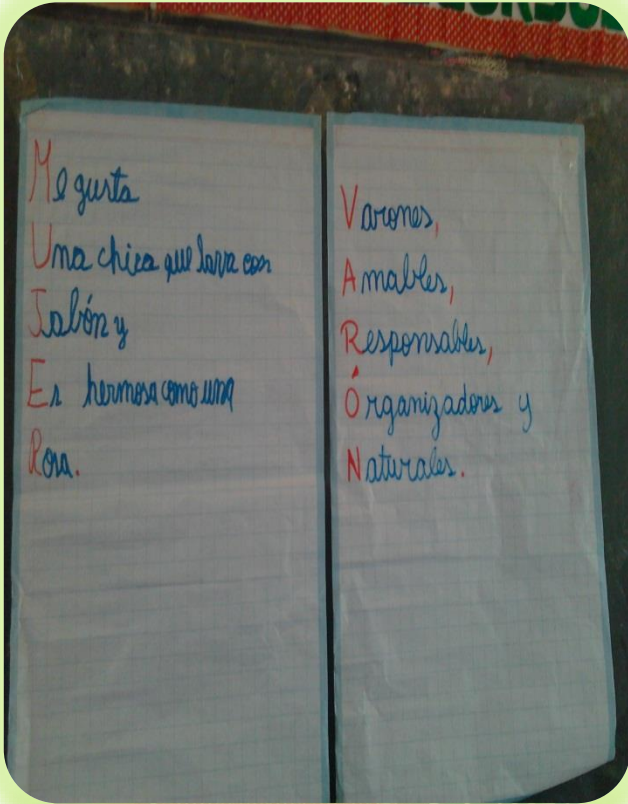 Me gusta
Una chica que lava con
Jabón y
Es hermosa como una
Rosa.
Varones,
Amables,
Responsables,
Órganizadores y
Naturales.